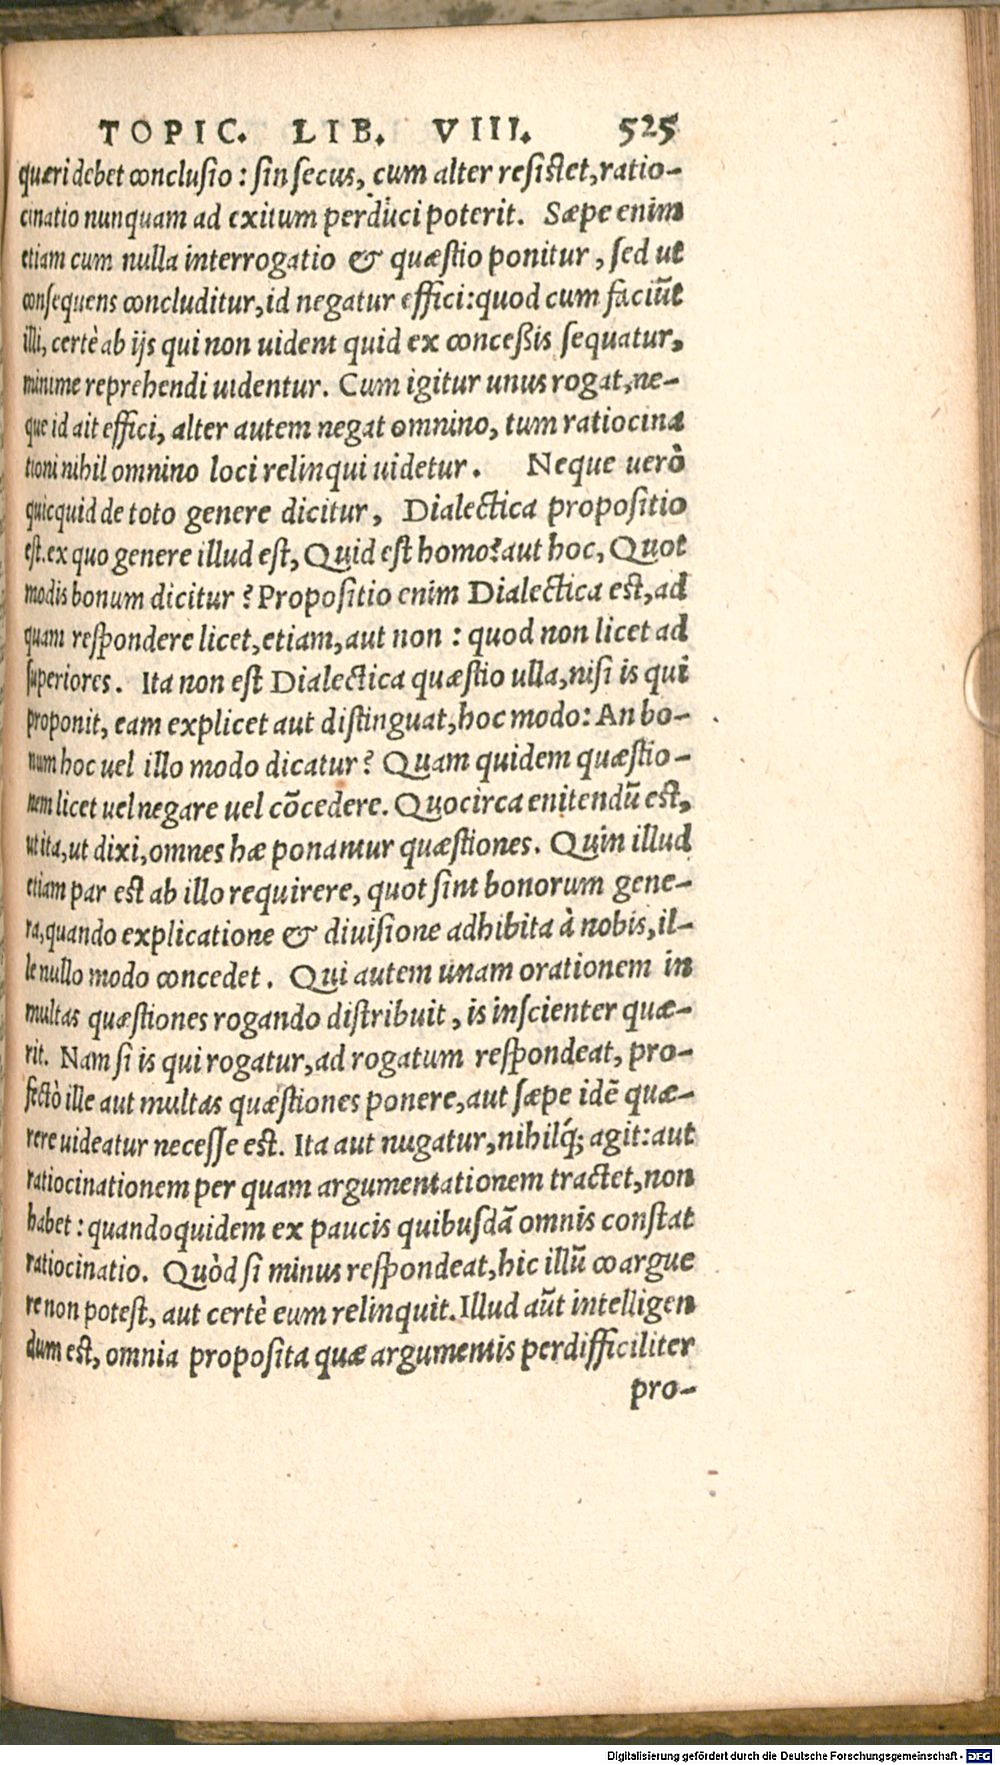 TOPIC. LIB. VIII. 525
quæri debet conclusio : sin secus, cum alter resistet, ratio-
cinatio nunquam ad exitum perduci poterit. Sæpe enim
etiam cum nulla interrogatio & quæstio ponitur, sed ut
consequens concluditur, id negatur effici: quod cum faciūt
illi, certè ab ijs qui non uident quid ex conceßis sequatur,
minime reprehendi uidentur. Cum igitur unus rogat, ne-
que id ait effici, alter autem negat omnino, tum ratiocina
tioni nihil omnino loci relinqui uidetur. Neque uerò
quicquid de toto genere dicitur, Dialectica propositio
est. ex quo genere illud est, Quid est homo? aut hoc, Quot
modis bonum dicitur? Propositio enim Dialectica est, ad
quam respondere licet, etiam, aut non : quod non licet ad
superiores. Ita non est Dialectica quæstio ulla, nisi is qui
proponit, eam explicet aut distinguat, hoc modo: An bo-
num hoc uel illo modo dicatur? Quam quidem quæstio-
nem licet uel negare uel cōcedere. Quocirca enitendū est,
ut ita, ut dixi, omnes hæ ponantur quæstiones. Quin illud
etiam par est ab illo requirere, quot sint bonorum gene-
ra, quando explicatione & diuisione adhibita à nobis, il-
le nullo modo concedet. Qui autem unam orationem in
multas quæstiones rogando distribuit, is inscienter quæ-
rit. Nam si is qui rogatur, ad rogatum respondeat, pro-
fectò ille aut multas quæstiones ponere, aut sæpe idē quæ-
rere uideatur necesse est. Ita aut nugatur, nihilq́; agit: aut
ratiocinationem per quam argumentationem tractet, non
habet : quandoquidem ex paucis quibusdā omnis constat
ratiocinatio. Quòd si minus respondeat, hic illū coargue
re non potest, aut certè eum relinquit. Illud aūt intelligen
dum est, omnia proposita quæ argumentis perdifficiliter
pro-
Digitalisierung gefördert durch die Deutsche Forschungsgemeinschaft - DFG